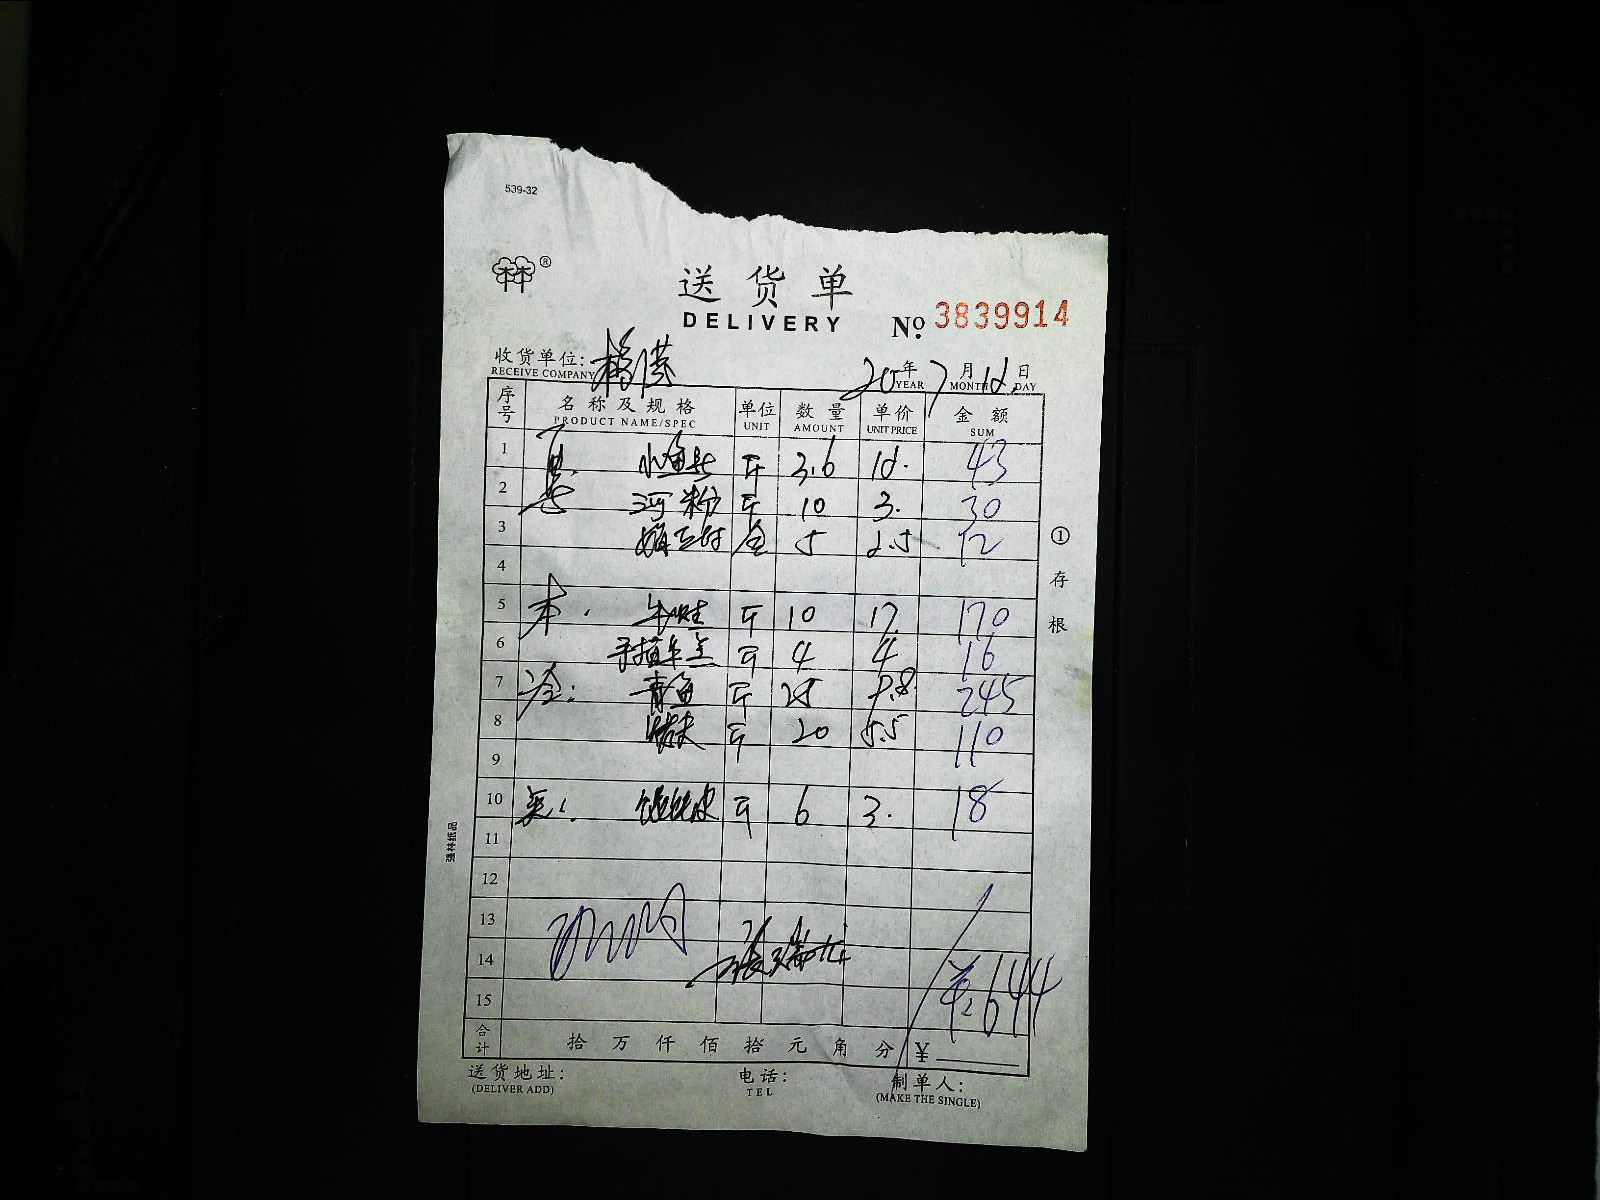 539-32
林®
送货单
DELIVERY
No. 3839914
收货单位:
RECEIVE COMPANY
20年 7月 12日
YEAR MONTH DAY
序号 名称及规格 单位 数量 单价 金额
PRODUCT NAME/SPEC UNIT AMOUNT UNIT PRICE SUM
1 小鱼 斤 3.6 12. 43
2 河粉 斤 10 3. 30
3 5 2.5 12
4
5 本. 牛蛙 斤 10 17 170
6 斤 4 4 16
7 冷: 青鱼 斤 25 9.8 245
8 斤 20 5.5 110
9
10 馄饨皮 斤 6 3. 18
11
12
13
14 张瑞龙
¥:644
15
合计 拾万仟佰拾元角分 ¥
送货地址:
(DELIVER ADD)
电话:
TEL
制单人:
(MAKE THE SINGLE)
①存根
强林纸品